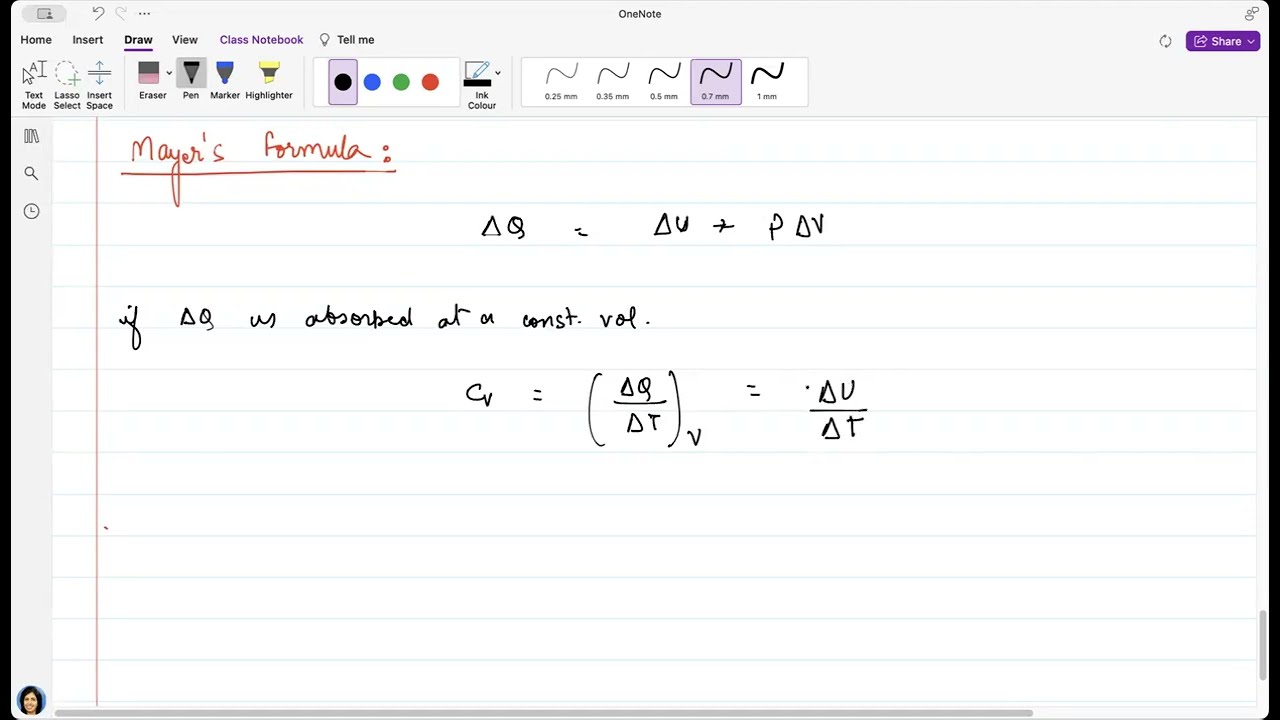 OneNote
Home Insert Draw View Class Notebook Tell me Share
Text Mode Lasso Select Insert Space Eraser Pen Marker Highlighter Ink Colour 0.25 mm 0.35 mm 0.5 mm 0.7 mm 1 mm
Mayer's Formula:
ΔQ = ΔU + P ΔV
if ΔQ is absorbed at a const. vol.
Cv = (ΔQ/ΔT)V = ΔU/ΔT